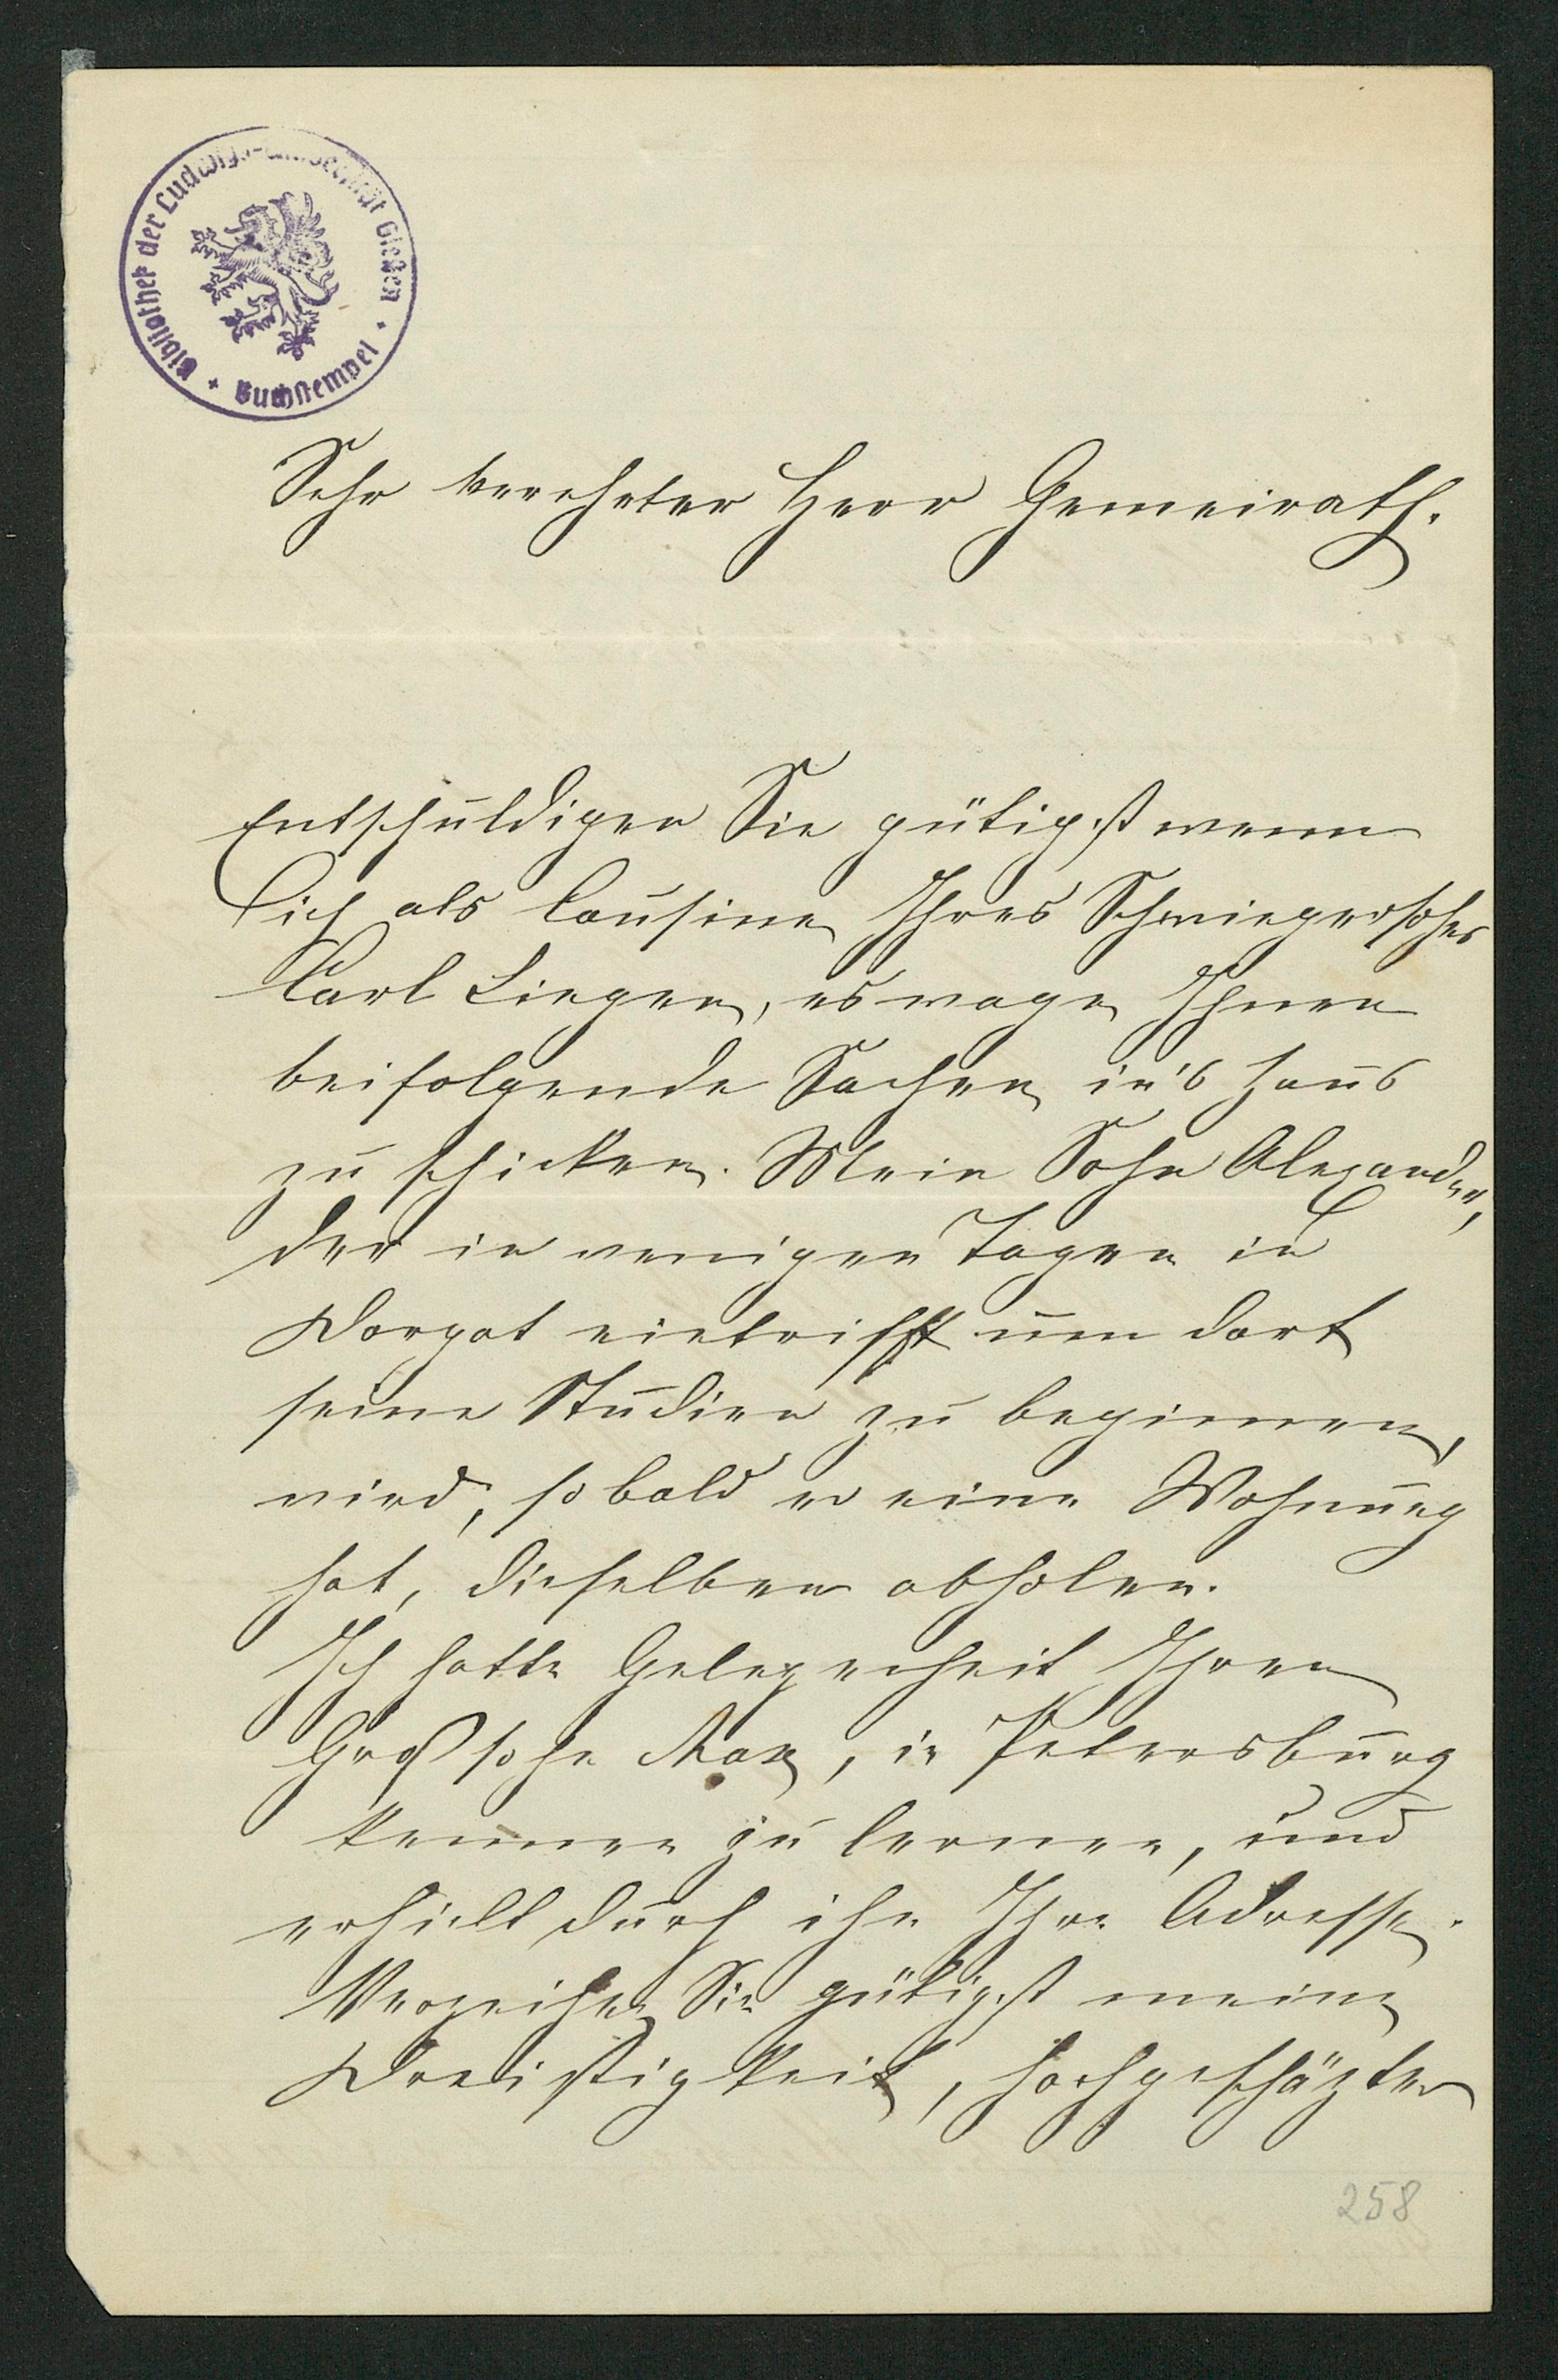 Bibliothek der Ludwigs-Universität Gießen
Buchstempel
Sehr verehrter Herr Gemeirath.
Entschuldigen Sie gütigst wenn
ich als Cousine Ihres Schwiegersohns
Carl Lingen, es wage Ihnen
beifolgende Sachen in's Haus
zu schicken. Mein Sohn Alexander,
der in wenigen Tagen in
Dorpat eintrifft um dort
seine Studien zu beginnen,
wird, so bald er eine Wohnung
hat, dieselben abholen.
Ich hatte Gelegenheit Ihren
Großsohn Max, in Petersburg
kennen zu lernen, und
erhielt durch ihn Ihre Adresse.
Verzeihen Sie gütigst meine
Dreistigkeit, hochgeschäzter
258